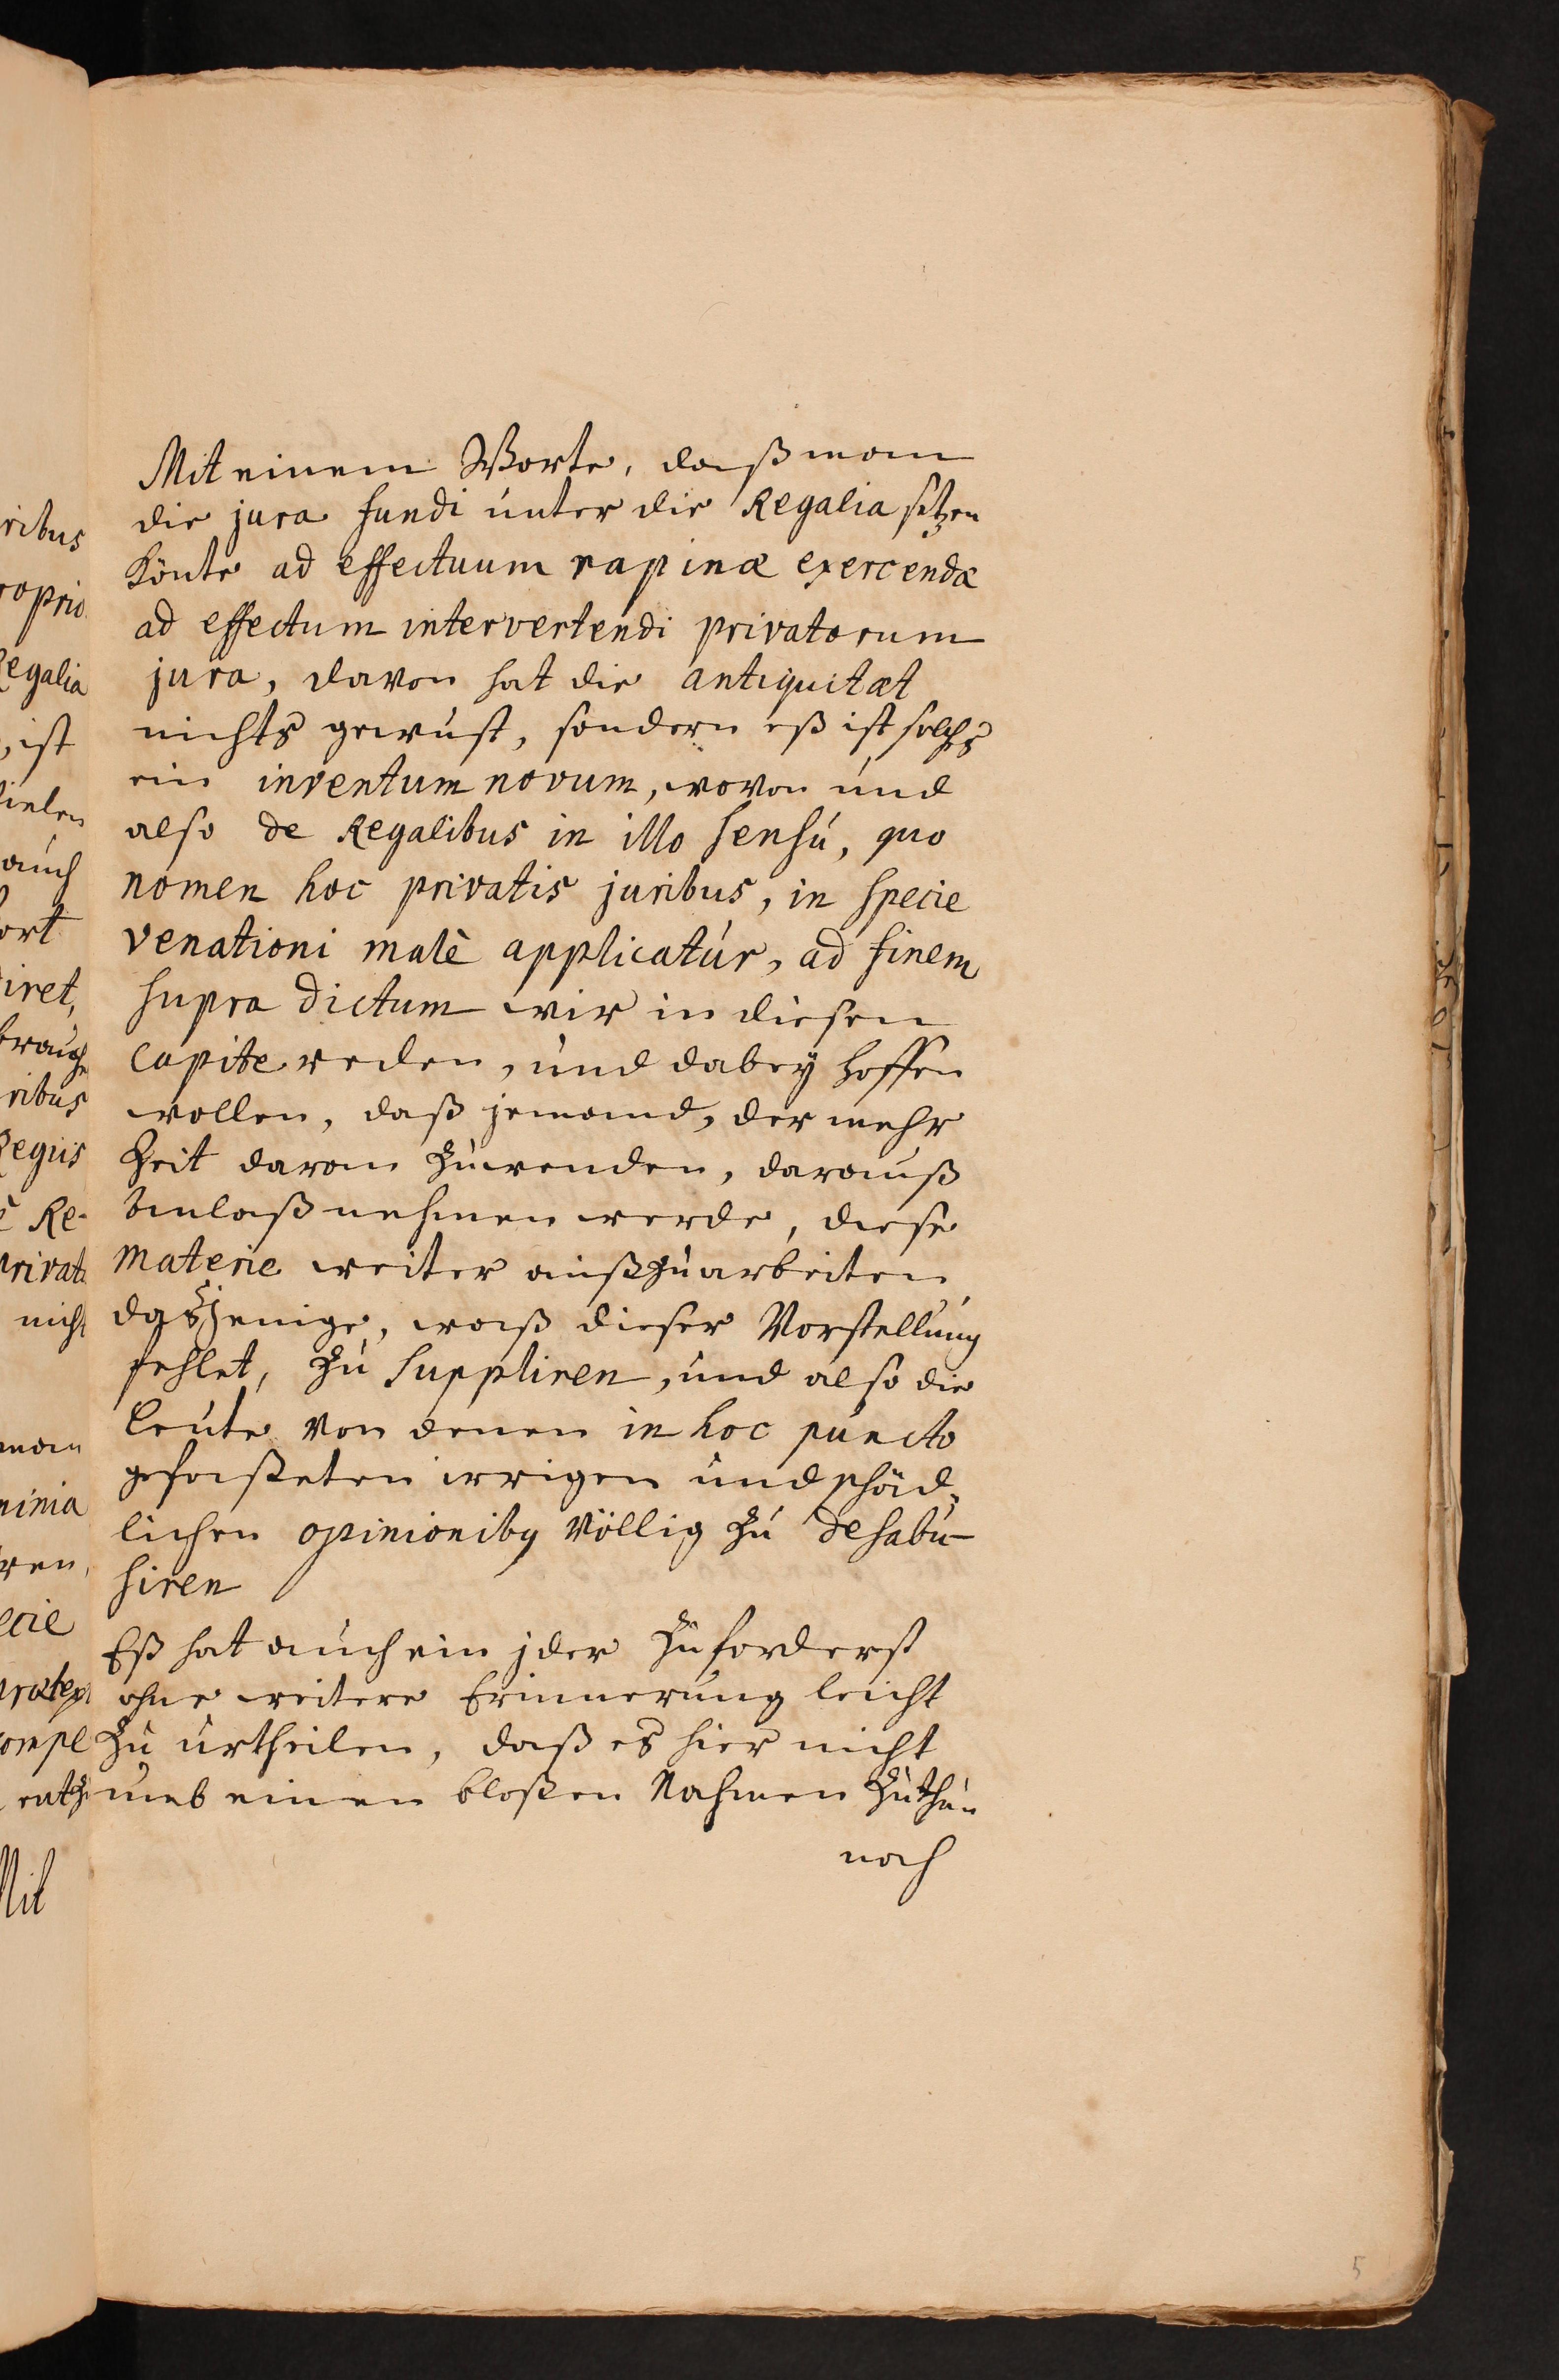 Mit einem Worte, daß man
die jura fundi unter die Regalia setzen
könte ad effectuum rapinæ exercendæ
ad effectum intervertendi privatorum
jura, davon hat die antiquitæt
nichts gewust, sondern eß ist solches
ein inventum novum, wovon und
also de Regalibus in illo sensu, quo
nomen hoc privatis juribus, in specie
venationi malè applicatur, ad finem
supra dictum wir in diesen
capite reden, und dabey hoffen
wollen, daß jemand, der mehr
Zeit daran zuwenden, darauß
anlaß nehmen werde, diese
materie weiter außzuarbeiten,
dasjenige, waß dieser Vorstellung
fehlet, zu suppliren, und also die
Leute von denen in hoc puncto
gefaßeten irrigen und schäd-
lichen opinionibꝫ völlig zu desabu-
siren
Eß hat auch ein jder zuforderst
ohne weitere Erinnerung leicht
zu urtheilen, daß es hier nicht
umb einen bloßen Nahmen zuthun
noch
5
ribus
roprio
Regalia
, ist
vielen
auch
ort
iret,
ribus
Regiis
è Re-
privat
nicht
man
minia
ren,
ecie
prætext
compl
Mit